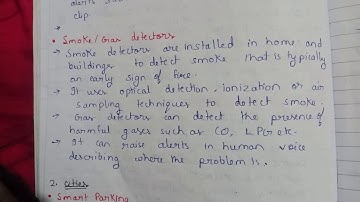 alerts
clip
• Smoke/Gas detectors
→ Smoke detectors are installed in home and
buildings to detect smoke that is typically
an early sign of fire.
→ It uses optical detection, ionization or air
sampling techniques to detect smoke.
→ Gas detectors can detect the presence of
harmful gases such as CO, LPG etc.
→ It can raise alerts in human voice
describing where the problem is.
2. Cities
• Smart Parking